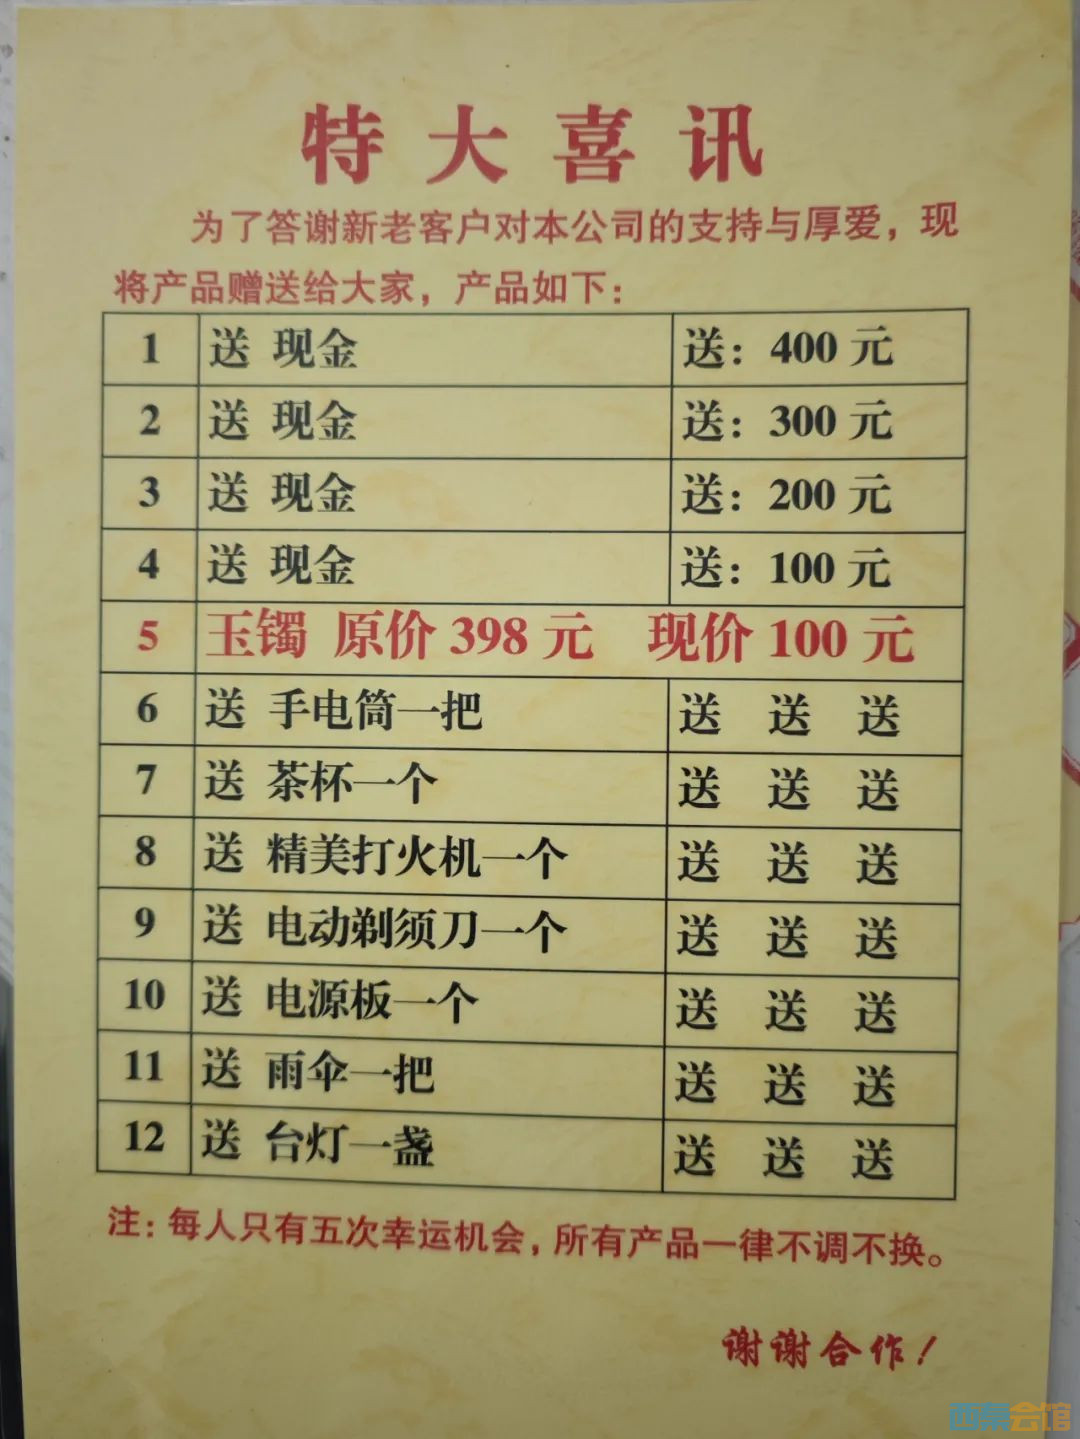 特大喜讯
为了答谢新老客户对本公司的支持与厚爱，现
将产品赠送给大家，产品如下：
1 送 现金 送：400 元
2 送 现金 送：300 元
3 送 现金 送：200 元
4 送 现金 送：100 元
5 玉镯 原价 398 元 现价 100 元
6 送 手电筒一把 送 送 送
7 送 茶杯一个 送 送 送
8 送 精美打火机一个 送 送 送
9 送 电动剃须刀一个 送 送 送
10 送 电源板一个 送 送 送
11 送 雨伞一把 送 送 送
12 送 台灯一盏 送 送 送
注：每人只有五次幸运机会，所有产品一律不调不换。
谢谢合作！
西秦会馆